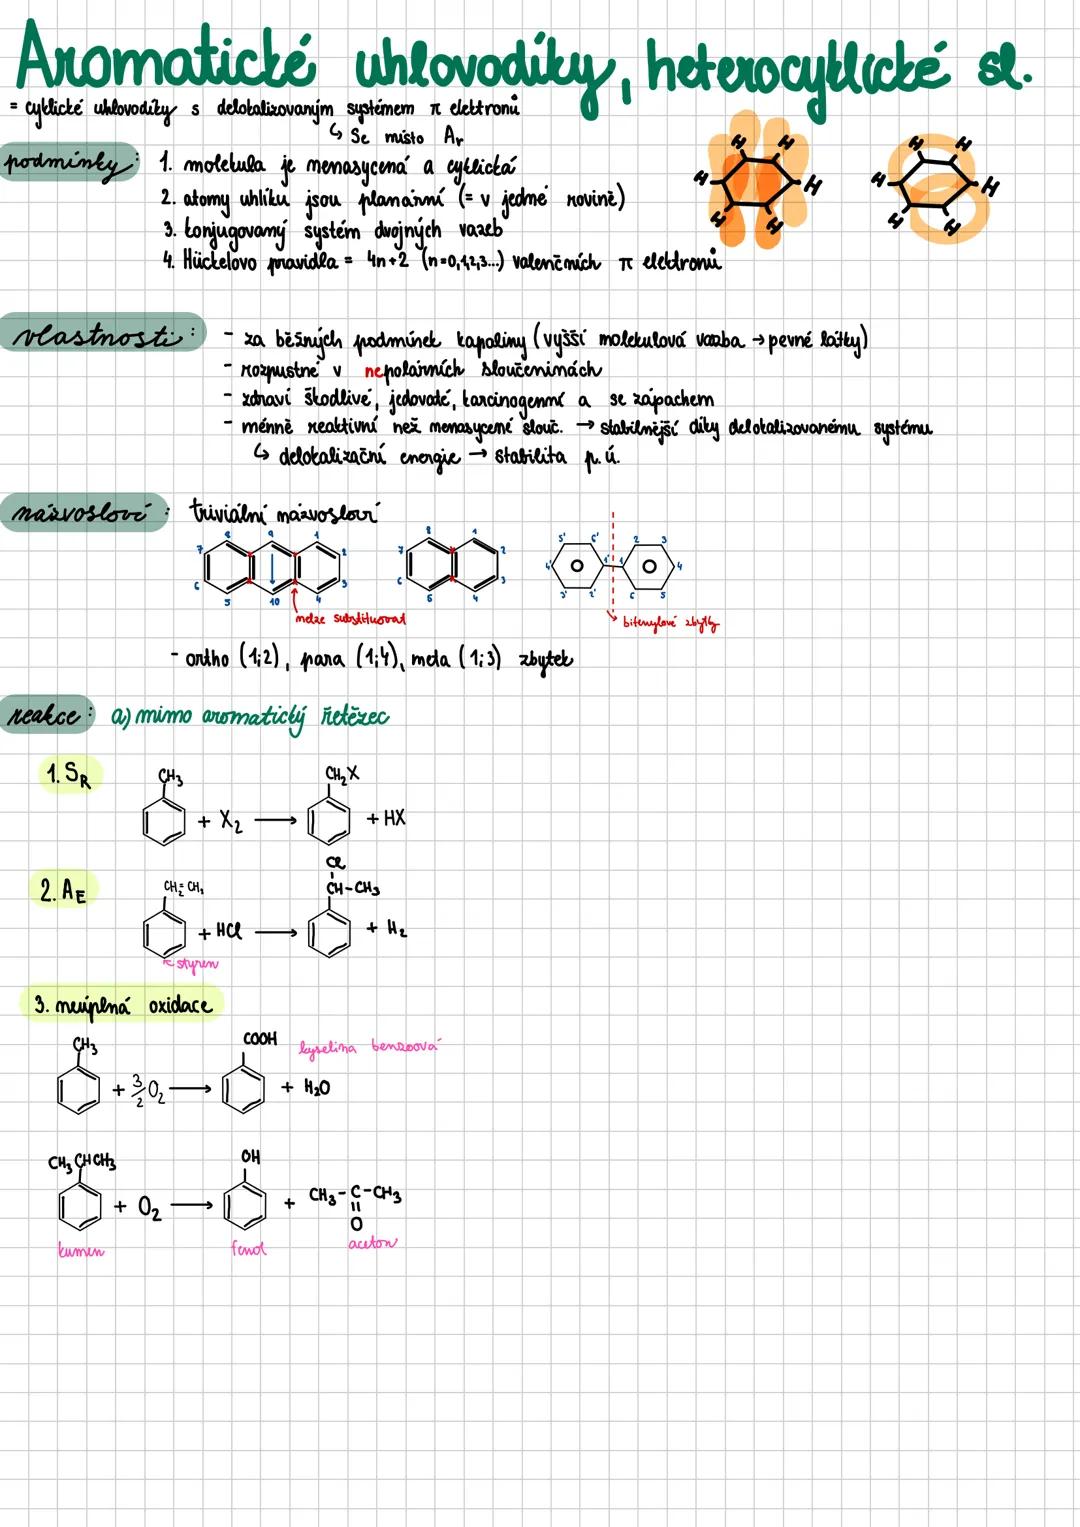 Aromatické uhlovodíky, heterocyklické sl.
= cyklické uhlovodíky s delokalizovaným systémem π elektronů
↳ Se místo Ar
podmínky: 1. molekula je nenasycená a cyklická
2. atomy uhlíku jsou planární (= v jedné rovině)
3. konjugovaný systém dvojných vazeb
4. Hückelovo pravidla = 4n+2 (n=0,1,2,3...) valenčních π elektronů
H H H H H H
H H H H H H
vlastnosti: - za běžných podmínek kapaliny (vyšší molekulová vazba → pevné látky)
- rozpustné v nepolárních sloučeninách
- zdraví škodlivé, jedovaté, karcinogenní a se zápachem
- ménně reaktivní než nenasycené slouč. → stabilnější díky delokalizovanému systému
↳ delokalizační energie → stabilita p. ú.
názvosloví: triviální názvosloví
8 9 1
7 2
6 3
5 10 4
nelze substituovat
8 1
7 2
6 3
5 4
5' 6' 2 3
4' 1' 1 4
3' 2' 6 5
bifenylové zbytky
- ortho (1;2), para (1;4), meta (1;3) zbytek
reakce: a) mimo aromatický řetězec
1. SR
CH3 CH2X
+ X2 → + HX
2. AE
Cl
CH=CH2 CH-CH3
+ HCl → + H2
styren
3. neúplná oxidace
CH3 COOH kyselina benzoová
+ 3/2 O2 → + H2O
CH3CHCH3 OH
+ O2 → + CH3-C-CH3
O
kumen fenol aceton